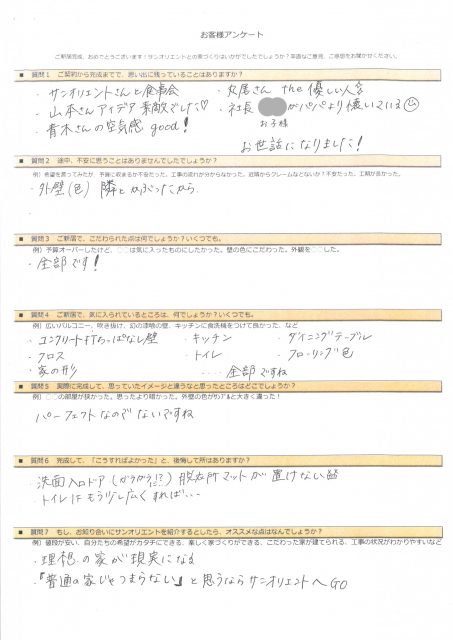 お客様アンケート
ご新居完成、おめでとうございます！サンオリエントとの家づくりはいかがでしたでしょうか？率直なご意見、ご感想をお聞かせください。
■ 質問1 ご契約から完成までで、思い出に残っていることはありますか？
・サンオリエントさんと食事会
・丸尾さん the 優しい人
・山本さんアイデア 素敵でした♡
・社長 がパパより懐いている
お子様
・青木さんの空気感 good！
お世話になりました！
■ 質問2 途中、不安に思うことはありませんでしたでしょうか？
例）希望を言ってみたが、予算に収まるか不安だった。工事の流れが分からなかった。近隣からクレームなどないか？不安だった。工期が長かった。
・外壁（色）隣とかぶったから
■ 質問3 ご新居で、こだわられた点は何でしょうか？いくつでも。
例）予算オーバーしたけど、○○は気に入ったものにしたかった。壁の色にこだわった。外観を○○した。
・全部です！
■ 質問4 ご新居で、気に入られているところは、何でしょうか？いくつでも。
例）広いバルコニー、吹き抜け、幻の漆喰の壁、キッチンに食洗機をつけて良かった、など
・コンクリート打ちっぱなし壁 ・キッチン ・ダイニングテーブル
・クロス ・トイレ ・フローリング色
・家の形 .... 全部ですね
■ 質問5 実際に完成して、思っていたイメージと違うなと思ったところはどこでしょうか？
例）○○の部屋が狭かった。思ったより暗かった。外壁の色がｻﾝﾌﾟﾙと大きく違った！
パーフェクトなのでないですね
■ 質問6 完成して、「こうすればよかった」と、後悔して所はありますか？
・洗面入口ドア 脱衣所マットが置けない
・トイレはもう少し広くすれば...
■ 質問7 もし、お知り合いにサンオリエントを紹介するとしたら、オススメな点はなんでしょうか？
例）値段が安い、自分たちの希望がカタチにできる、楽しく家づくりができる、こだわった家が建てられる、工事の状況がわかりやすいなど
・理想の家が現実になる
・『普通の家じゃつまらない』と思うならサンオリエントへGO